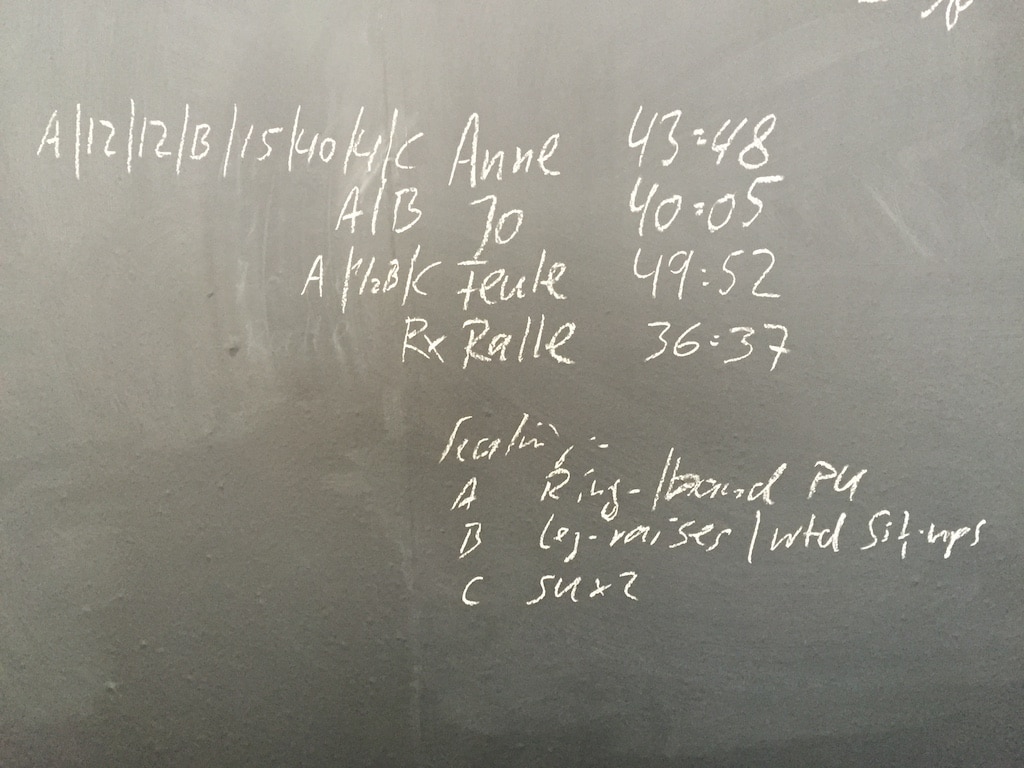 A/12/12/B/15/40/4/C Anne 43:48
A/B Jo 40:05
A / /C 49:52
Rx Ralle 36:37
Scaling:
A Ring-/band PU
B leg-raises / wtd Sit-ups
C SU x 2